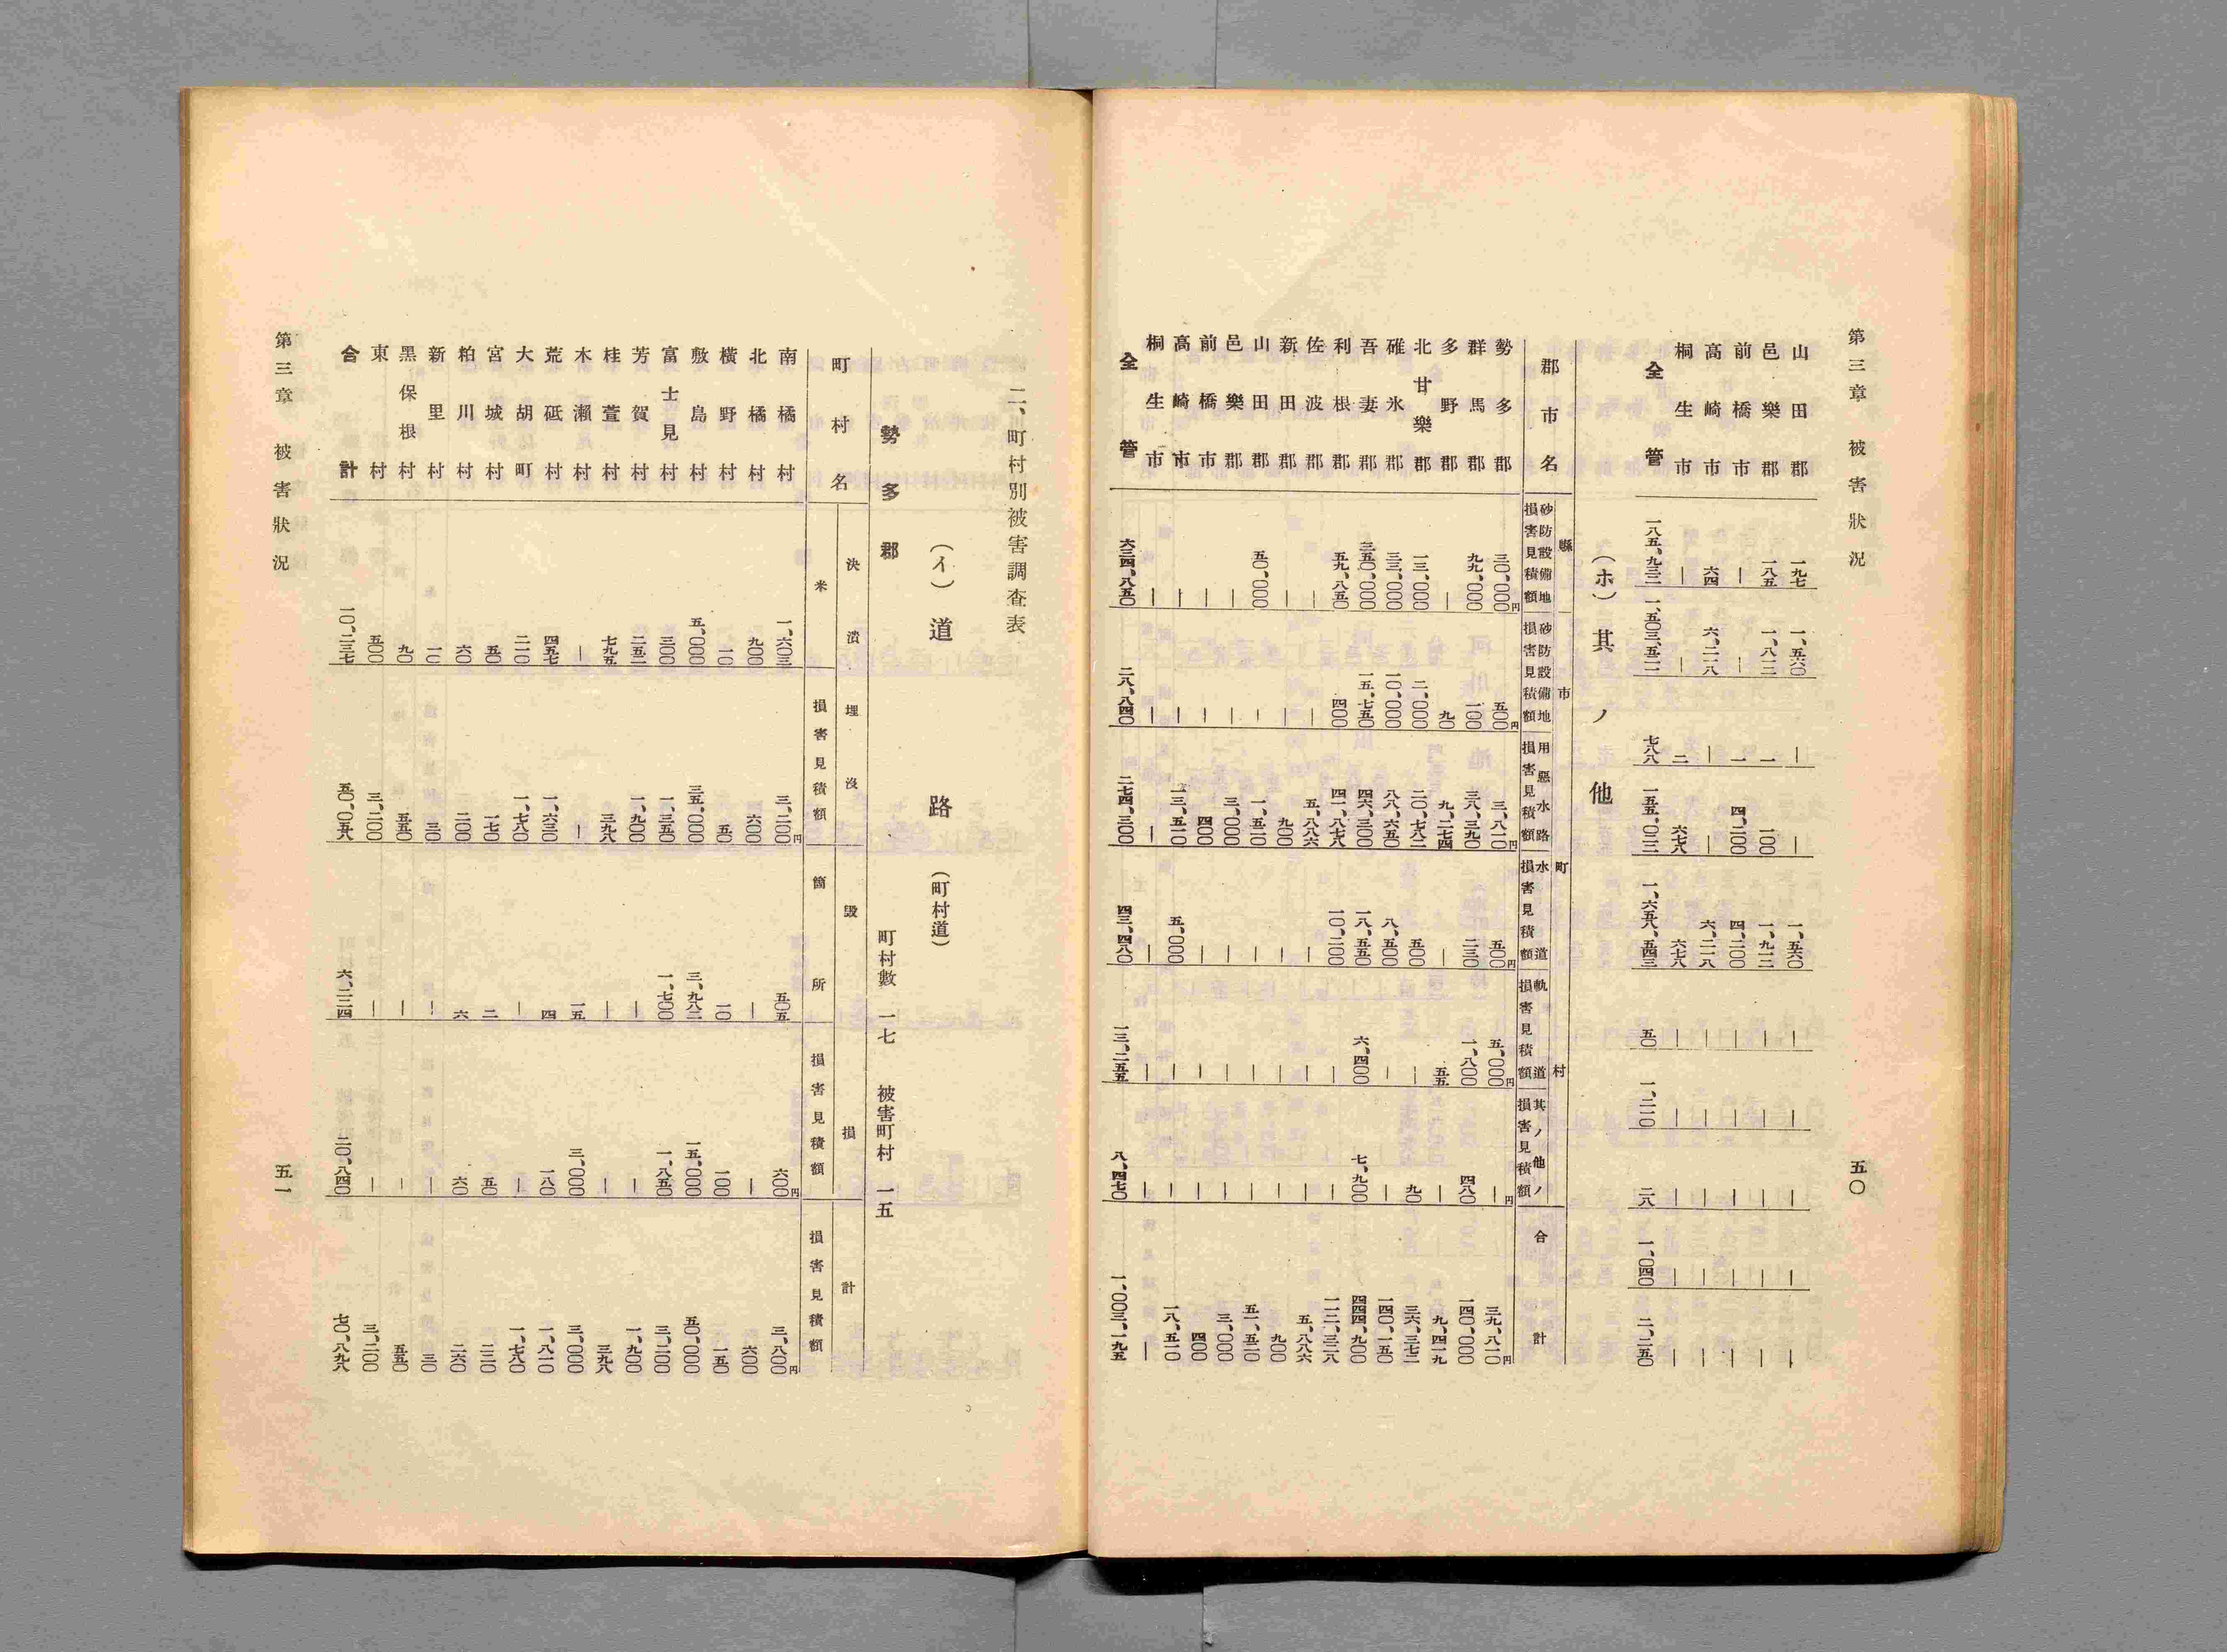 第三章 被害狀況 五〇
山田郡 一九七 一、五六〇 — — 一、五六〇 — — — — —
邑樂郡 一八五 一、八一二 一 一〇〇 一、九一二 — — — — —
前橋市 — — 一 四、二〇〇 四、二〇〇 — — — — —
高崎市 六四 六、二一八 — — 六、二一八 — — — — —
桐生市 — — 二 六七八 六七八 — — — — —
全管 一八五、九三二 一、五〇三、五二一 七八八 一五五、〇二二 一、六五八、五四三 五〇 一、二一〇 二八 一、〇四〇 二、二五〇
(ホ) 其ノ他
郡市名 縣 市町村 合計
砂防設備地損害見積額 砂防設備地損害見積額 用惡水路損害見積額 水道損害見積額 軌道損害見積額 其ノ他ノ損害見積額
勢多郡 三〇、〇〇〇円 五〇〇円 三、八一〇円 五〇〇円 五、〇〇〇円 —円 三九、八一〇円
群馬郡 九九、〇〇〇 一〇〇 三八、三九〇 二三〇 一、八〇〇 四八〇 一四〇、〇〇〇
多野郡 — 九〇 九、二七四 — 五五 — 九、四一九
北甘樂郡 一三、〇〇〇 二、〇〇〇 二〇、七八二 五〇〇 — 九〇 三六、三七二
碓氷郡 三三、〇〇〇 一〇、〇〇〇 八八、六五〇 八、五〇〇 — — 一四〇、一五〇
吾妻郡 三五〇、〇〇〇 一五、七五〇 四六、三〇〇 一八、五五〇 六、四〇〇 七、九〇〇 四四四、九〇〇
利根郡 五九、八五〇 四〇〇 四一、八七八 一〇、二〇〇 — — 一一二、三二八
佐波郡 — — 五、八八六 — — — 五、八八六
新田郡 — — 九〇〇 — — — 九〇〇
山田郡 五〇、〇〇〇 — 一、五二〇 — — — 五一、五二〇
邑樂郡 — — 三、〇〇〇 — — — 三、〇〇〇
前橋市 — — 四〇〇 — — — 四〇〇
高崎市 — — 一三、五一〇 五、〇〇〇 — — 一八、五一〇
桐生市 — — — — — — —
全管 六三四、八五〇 二八、八四〇 二七四、三〇〇 四三、四八〇 一三、二五五 八、四七〇 一、〇〇三、一九五
二、町村別被害調査表
(イ) 道路 (町村道)
勢多郡 町村數 一七 被害町村 一五
町村名 決潰埋沒 毀損 計
米 損害見積額 箇所 損害見積額 損害見積額
南橘村 一、六〇三 三、二〇〇円 五〇五 六〇〇円 三、八〇〇円
北橘村 九〇〇 六〇〇 — — 六〇〇
橫野村 一〇 五〇 一〇 一〇〇 一五〇
敷島村 五、〇〇〇 三五、〇〇〇 三、九八二 一五、〇〇〇 五〇、〇〇〇
富士見村 三〇〇 一、三五〇 一、七〇〇 一、八五〇 三、二〇〇
芳賀村 二五二 一、九〇〇 — — 一、九〇〇
桂萱村 七九五 三九八 — — 三九八
木瀨村 — — 一五 三、〇〇〇 三、〇〇〇
荒砥村 四五七 一、六三〇 四 一八〇 一、八一〇
大胡町 二一〇 一、七八〇 — — 一、七八〇
宮城村 五〇 一七〇 二 五〇 二二〇
粕川村 六〇 二〇〇 六 六〇 二六〇
新里村 一〇 三〇 — — 三〇
黑保根村 九〇 五五〇 — — 五五〇
東村 五〇〇 三、二〇〇 — — 三、二〇〇
合計 一〇、二三七 五〇、〇五八 六、二二四 二〇、八四〇 七〇、八九八
第三章 被害狀況 五一